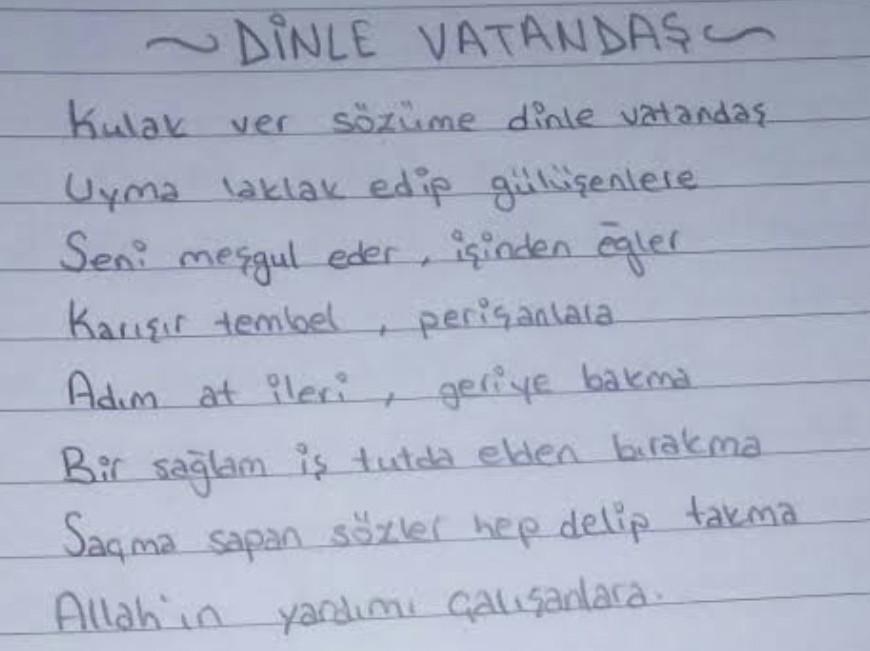 ~ DİNLE VATANDAŞ ~
Kulak ver sözüme dinle vatandaş
Uyma laklak edip gülüşenlere
Seni meşgul eder, işinden eğler
Karışır tembel, perişanlara
Adım at ileri, geriye bakma
Bir sağlam iş tutda elden bırakma
Saçma sapan sözler hep delip takma
Allah'ın yardımı çalışanlara.